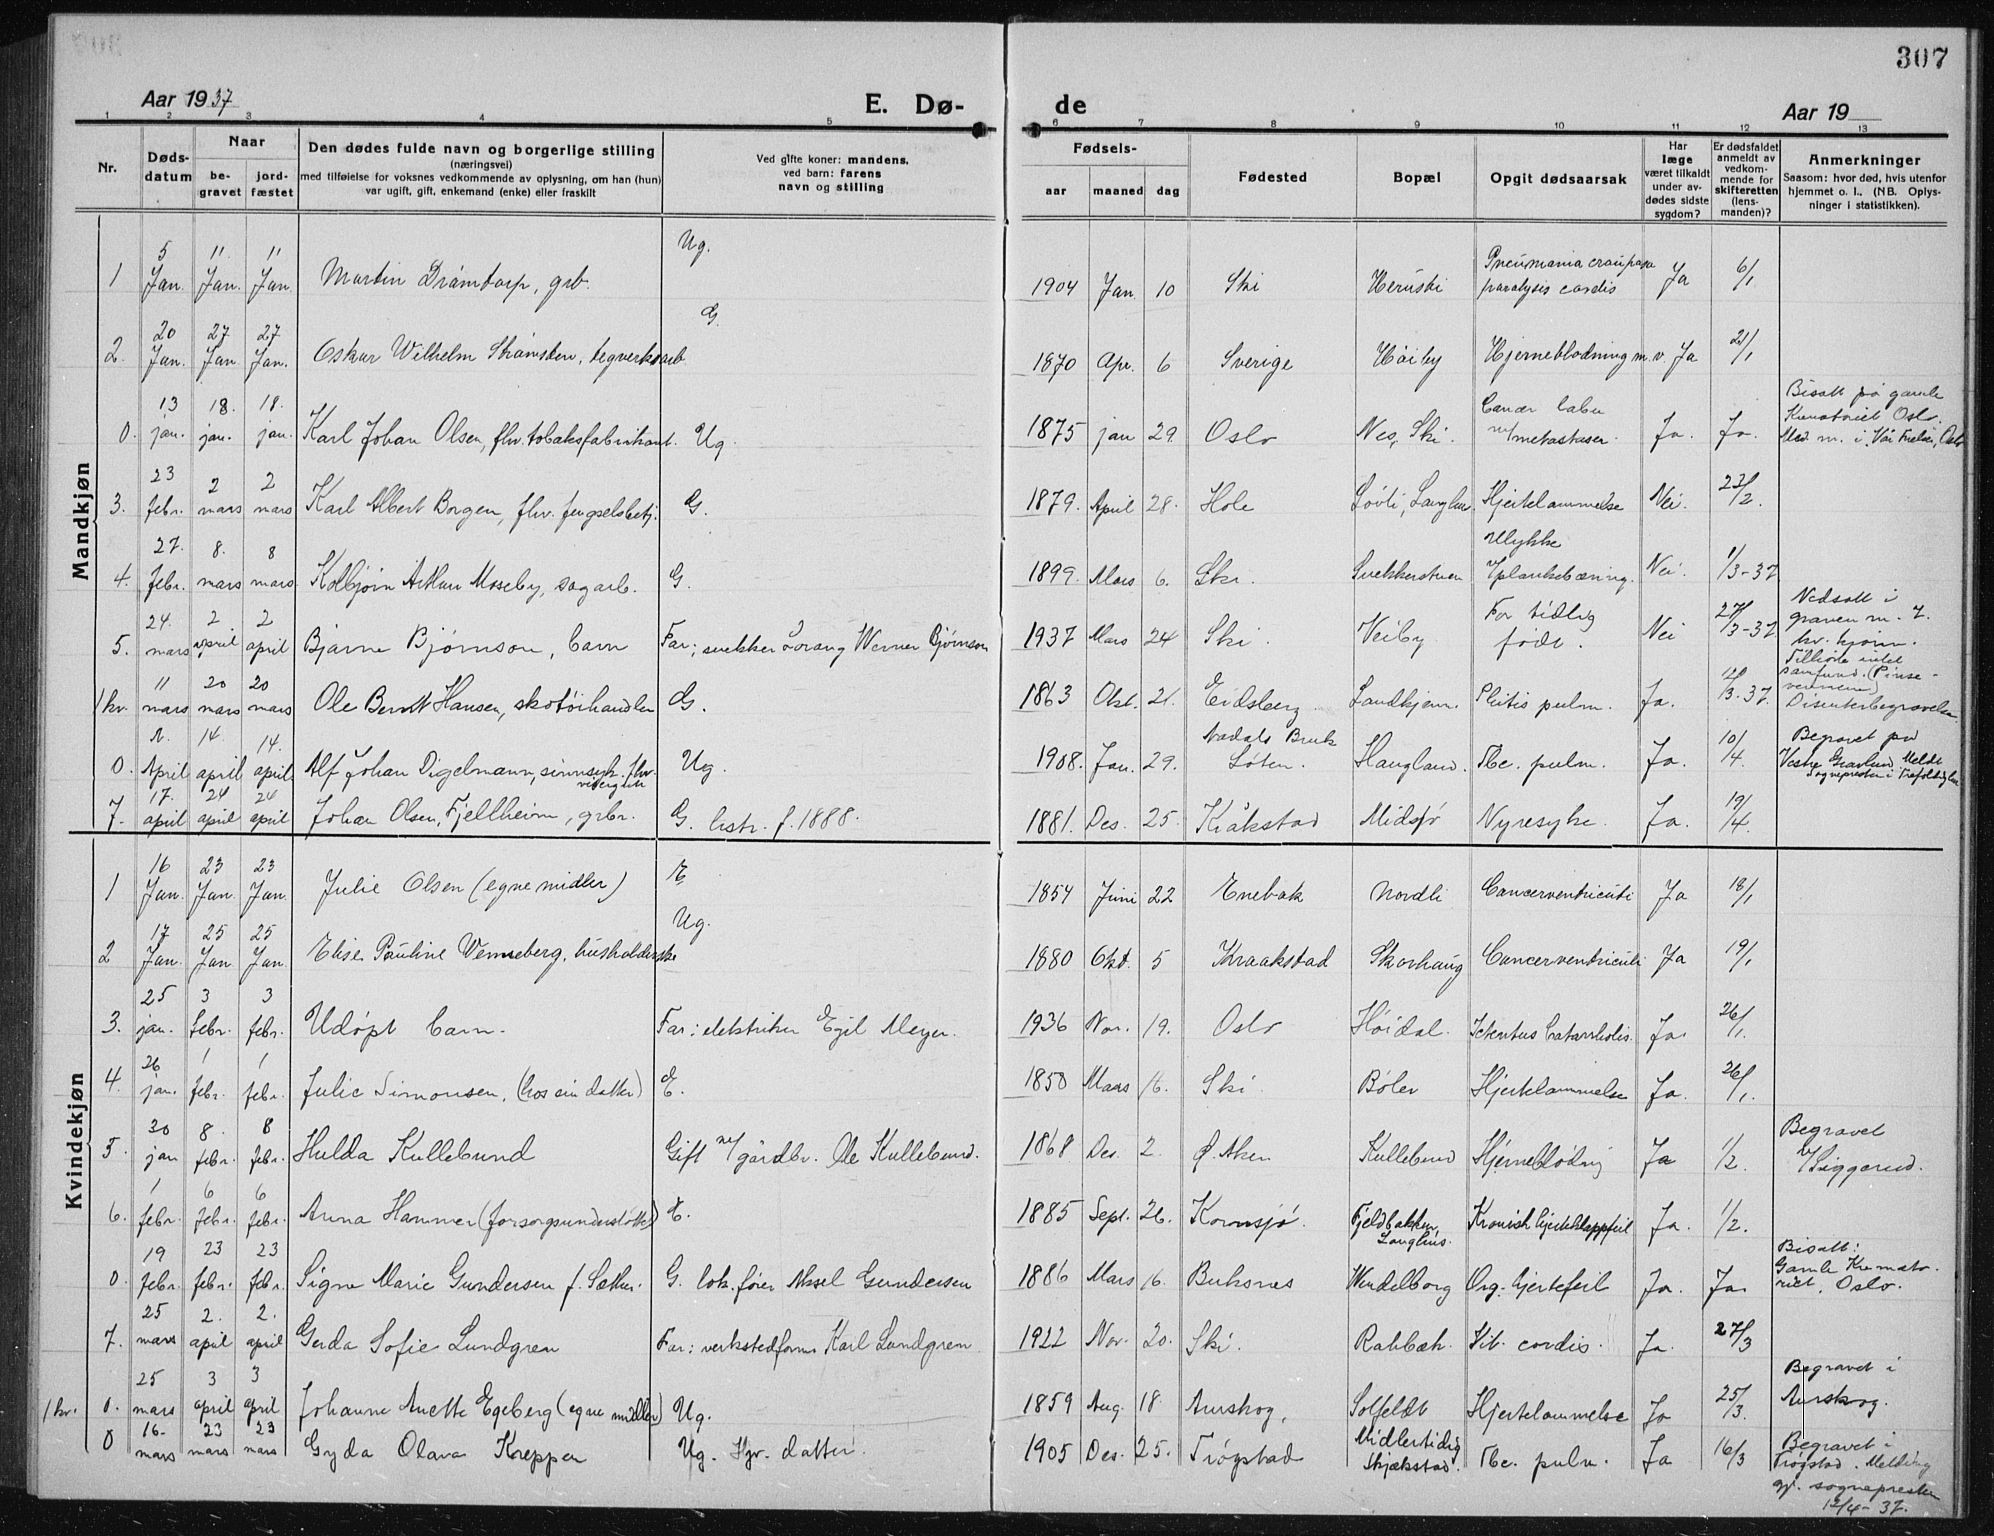 307
Aar 1937
E. Dø-
de
Aar 19
1 2 3 4 5 6 7 8 9 10 11 12 13
Nr.
Døds-
datum
Naar
be-
gravet
jord-
fæstet
Den dødes fulde navn og borgerlige stilling
(næringsvei)
med tilføielse for voksnes vedkommende av oplysning, om han (hun)
var ugift, gift, enkemand (enke) eller fraskilt
Ved gifte koner: mandens,
ved barn: farens
navn og stilling
Fødsels-
aar maaned dag
Fødested
Bopæl
Opgit dødsaarsak
Har
læge
været tilkaldt
under av-
dødes sidste
sygdom?
Er dødsfaldet
anmeldt av
vedkom-
mende for
skifteretten
(lens-
manden)?
Anmerkninger
Saasom: hvor død, hvis utenfor
hjemmet o. l., (NB. Oplys-
ninger i statistikken).
Mandkjøn
1 5 Jan. 11 Jan. 11 Jan. Martin Drømtorp, grb. Ug. 1904 Jan. 10 Ski paralysis cordis Ja 6/1
2. 20 Jan. 27 Jan. 27 Jan. Oskar Wilhelm teglverksarb. G. 1870 Apr. 6 Sverige Høiby Hjerneblødning m. v. Ja 21/1
0. 13 jan. 18. jan. 18. jan. Karl Johan Olsen, fhv. tobaksfabrikant. Ug. 1875 jan 29. Oslo Nes, Ski. m/metastaser. Ja. Ja. Bisatt på gamle Krematoriet Oslo.
3. 23 febr. 2 mars 2 mars Karl Albert Borgen, fhv. fengselsbetj. G. 1879. April 28. Hole Løvli, Langhus Hjertelammelse Nei. 23/2.
4. 27. febr. 8. mars 8 mars Kolbjørn Arthur Moseby, sagarb. G. 1899. Mars 6. Ski. Snekkerstuen Ulykke v/plankebæring. Nei. 1/3-37
5. 24. mars 2 april 2 april Bjarne Bjørnson, barn Far; snekker Werner Bjørnson 1937 Mars 24 Ski. Veiby For tidlig født. Nei 27/3-37 Nedsatt i graven m. 7. kv. kjønn.
1 kv. 11 mars 20 mars 20 mars Ole Berntt Hansen, skotøihandler G. 1863 Okt. 21. Eidsberg Sandkjern. pulm. Ja. 12/3-37. Tilhørte intet samfund. (Pinsevennene) Disenterbegravelse
0. April 14 april 14. april Alf Johan Digelmann, sinnsyk. fhv. visergutt Ug. 1908. Jan. 29. Aadals Bruk Løten. Haugland. Tbc. pulm. Ja. 10/4. Begravet på Vestre Gravlund. Meldt sognepresten i Trefoldighet
7. 17. april 24 april 24 april Johan Olsen, Fjellheim, grbr. G. hstr. f. 1888. 1881. Des. 25. Kråkstad Midsjø Nyresyke. Ja. 19/4.
Kvindekjøn
1 16 Jan. 23 Jan. 23 Jan. Julie Olsen (egne midler) E. 1854 Juni 22 Enebak Nordli Cancerventriculi Ja 18/1
2 17 Jan. 25 Jan. 25 Jan. Elise Pauline Wenneberg, husholderske Ug. 1880 Okt. 5 Kraakstad Skovhaug Cancerventriculi Ja 19/1
3. 25 jan. 3 febr. 3 febr. Udøpt barn. Far: elektriker Egil Meyer. 1936 Nov. 19. Oslo Høidal. Ja. 26/1.
4. 26 jan. 1 febr. 1 febr. Julie Simonsen, (hos sin datter) E. 1850 Mars 16. Ski. Bøler Hjertelammelse Ja. 26/1.
5. 30 jan 8. febr. 8 febr. Hulda Kullebund Gift m/gårdbr. Ole Kullebund. 1868 Des. 2. Ø. Aker Kullebund Hjerneblødnig Ja 1/2. Begravet v/Siggerud.
6. 1 febr. 6 febr. 6 febr. Anna Hammer (forsorgsunderstøttet) E. 1885 Sept. 26. Kornsjø. Fjeldbakken, Langhus. Kronisk hjerteklappfeil Ja. 1/2.
0. 19 febr. 23 febr. 23 febr. Signe Marie Gundersen f. Sæther. G. lok.fører Aksel Gundersen 1886 Mars 16. Buksnes Wendelborg Org. hjertefeil Ja. Ja. Bisatt: Gamle Krematoriet, Oslo.
7. 25 mars 2. april 2. april Gerda Sofie Lundgren Far: verkstedform. Karl Lundgren 1922 Nov. 20. Ski. Rabbæk. Vit. cordis. Ja. 27/3
1 kv. 0. 25 mars 3 april 3 april Johanne Anette Egeberg (egne midler) Ug. 1859 Aug. 18. Aurskog, Solfeldt Hjertelammelse Ja 25/3. Begravet i Aurskog.
0 16. mars 23 mars 23 mars Gyda Olava Kreppen Ug. Hjv. datter. 1905 Des. 25. Trøgstad Midlertidig Skjækstad. Tbc. pulm. Ja 16/3 Begravet i Trøgstad. Melding gj. sognepresten 12/4-37.